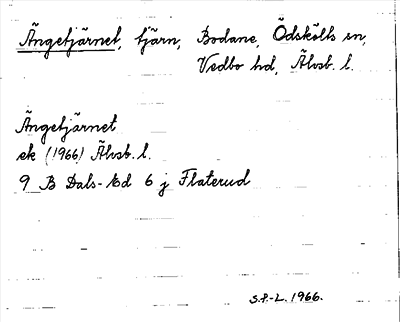 Ängetjärnet, tjärn, Bodane, Ödskölts sn,
Vedbo hd, Älvsb. l.
Ängetjärnet
ek (1966) Älvsb. l.
9 B Dals-Ed 6 j Flaterud
S.P.-L. 1966.